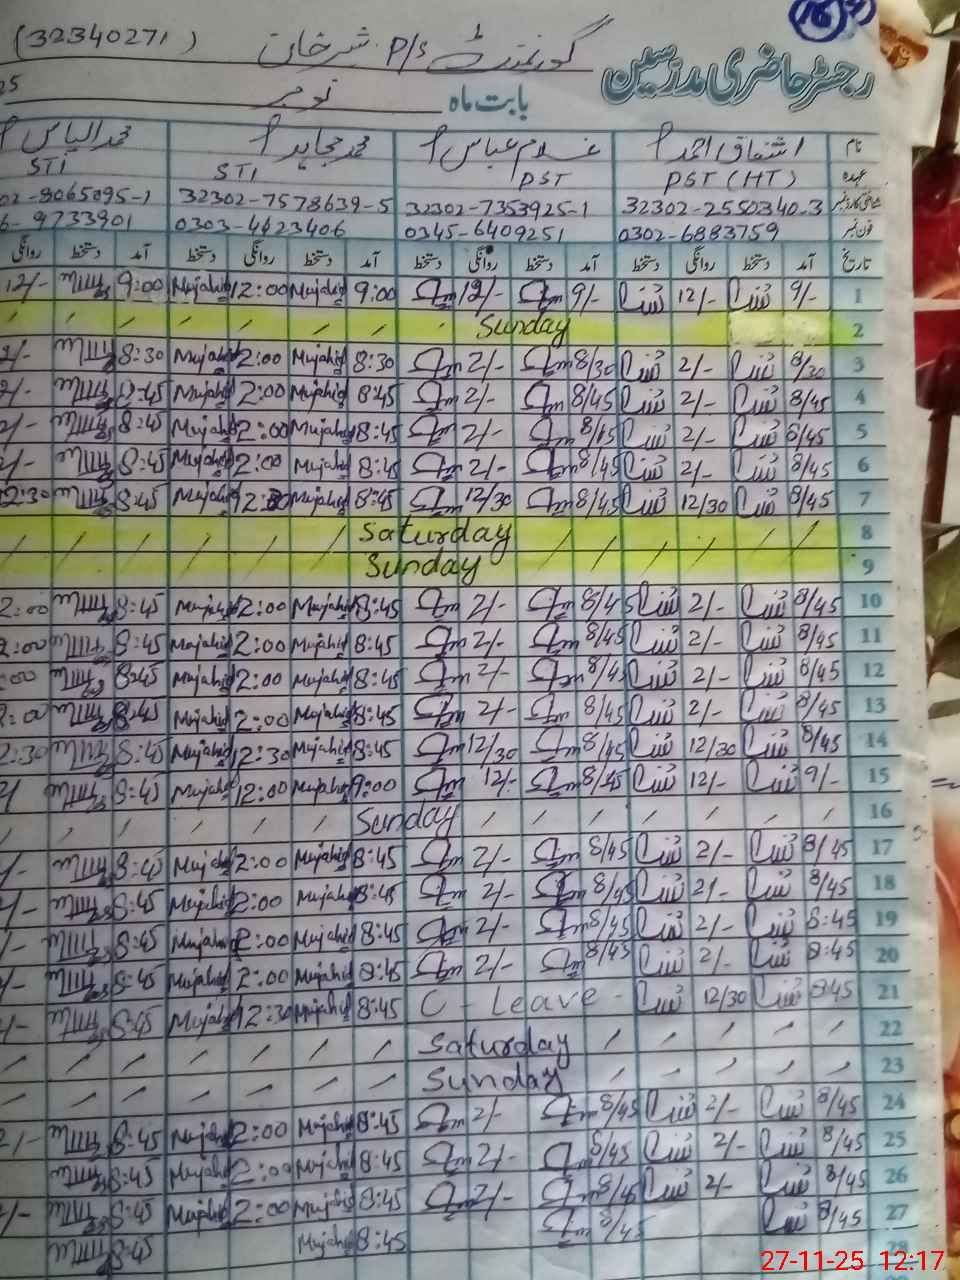 16
رجسٹر حاضری مدرسین
گورنمنٹ P/S شیر خان (32340271)
بابت ماہ نومبر 25
نام اشفاق احمد غلام عباس محمد مجاہد محمد الیاس
عہدہ PST (HT) PST STI STI
شناختی کارڈ نمبر 32302-2550340-3 32302-7353925-1 32302-7578639-5 02-8065095-1
فون نمبر 0302-6883759 0345-6409251 0303-4623406 6-9733901
تاریخ آمد دستخط روانگی دستخط آمد دستخط روانگی دستخط آمد دستخط روانگی دستخط آمد دستخط روانگی
1 9/- 12/- 9/- 12/- 9:00 Mujahid 12:00 Mujahid 9:00 12/-
2 Sunday
3 8/30 2/- 8/30 2/- 8:30 Mujahid 2:00 Mujahid 8:30 2/-
4 8/45 2/- 8/45 2/- 8:45 Mujahid 2:00 Mujahid 8:45 2/-
5 8/45 2/- 8/45 2/- 8:45 Mujahid 2:00 Mujahid 8:45 2/-
6 8/45 2/- 8/45 2/- 8:45 Mujahid 2:00 Mujahid 8:45 2/-
7 8/45 12/30 8/45 12/30 8:45 Mujahid 12:30 Mujahid 8:45 12:30
8 Saturday
9 Sunday
10 8/45 2/- 8/45 2/- 8:45 Mujahid 2:00 Mujahid 8:45 2:00
11 8/45 2/- 8/45 2/- 8:45 Mujahid 2:00 Mujahid 8:45 2:00
12 8/45 2/- 8/45 2/- 8:45 Mujahid 2:00 Mujahid 8:45 :00
13 8/45 2/- 8/45 2/- 8:45 Mujahid 2:00 Mujahid 8:45 2:00
14 8/45 12/30 8/45 12/30 8:45 Mujahid 12:30 Mujahid 8:45 2:30
15 9/- 12/- 8/45 12/- 9:00 Mujahid 12:00 Mujahid 8:45 2/
16 Sunday
17 8/45 2/- 8/45 2/- 8:45 Mujahid 2:00 Mujahid 8:45 /-
18 8/45 2/- 8/45 2/- 8:45 Mujahid 2:00 Mujahid 8:45 /-
19 8:45 2/- 8/45 2/- 8:45 Mujahid 2:00 Mujahid 8:45 /-
20 8:45 2/- 8/45 2/- 8:45 Mujahid 2:00 Mujahid 8:45 /-
21 8:45 12/30 C-Leave 8:45 Mujahid 12:30 Mujahid 8:45 /-
22 Saturday
23 Sunday
24 8/45 2/- 8/45 2/- 8:45 Mujahid 2:00 Mujahid 8:45 2/-
25 8/45 2/- 8/45 2/- 8:45 Mujahid 2:00 Mujahid 8:45
26 8/45 2/- 8/45 2/- 8:45 Mujahid 2:00 Mujahid 8:45 /-
27 8/45 8/45 8:45 Mujahid 8:45
28
27-11-25 12:17